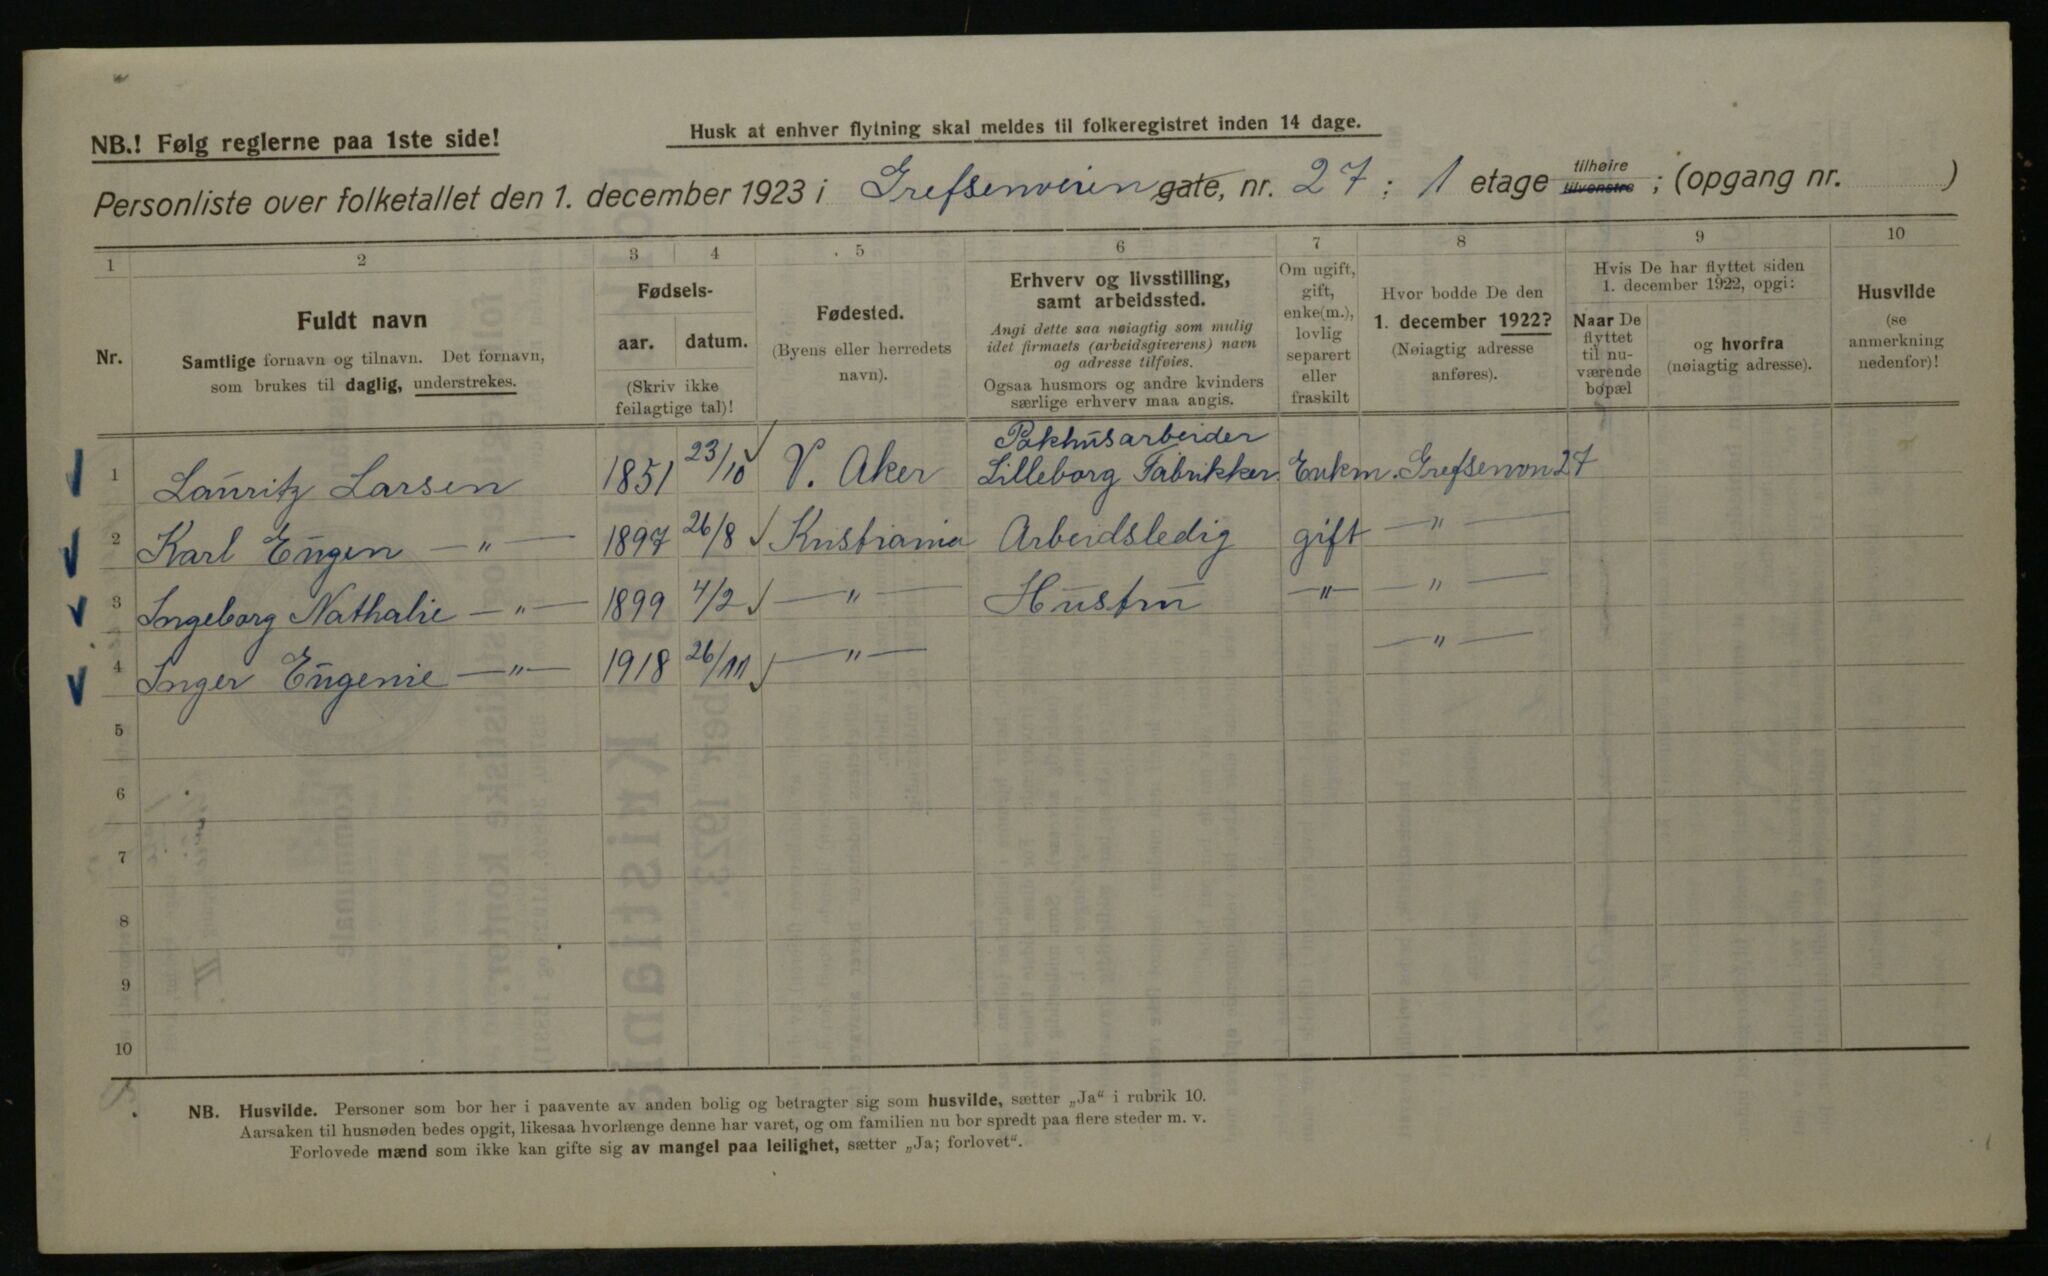 NB.! Følg reglerne paa 1ste side!
Husk at enhver flytning skal meldes til folkeregistret inden 14 dage.
Personliste over folketallet den 1. december 1923 i Grefsenveien gate, nr. 27 ; 1 etage tilhøire tilvenstre ; (opgang nr. )
1 2 3 4 5 6 7 8 9 10
Nr.
Fuldt navn
Samtlige fornavn og tilnavn. Det fornavn,
som brukes til daglig, understrekes.
Fødsels-
aar. datum.
(Skriv ikke
feilagtige tal)!
Fødested.
(Byens eller herredets
navn).
Erhverv og livsstilling,
samt arbeidssted.
Angi dette saa nøiagtig som mulig
idet firmaets (arbeidsgiverens) navn
og adresse tilføies.
Ogsaa husmors og andre kvinders
særlige erhverv maa angis.
Om ugift,
gift,
enke(m.),
lovlig
separert
eller
fraskilt
Hvor bodde De den
1. december 1922?
(Nøiagtig adresse
anføres).
Hvis De har flyttet siden
1. december 1922, opgi:
Naar De
flyttet
til nu-
værende
bopæl
og hvorfra
(nøiagtig adresse).
Husvilde
(se
anmerkning
nedenfor)!
1 Lauritz Larsen 1851 23/10 V. Aker Pakhusarbeider Lilleborg Fabrikker Enkm. Grefsenvn 27
2 Karl Eugen — " — 1897 26/8 Kristiania Arbeidsledig gift — " —
3 Ingeborg Nathalie — " — 1899 4/2 — " — Hustru — " — — " —
4 Inger Eugenie — " — 1918 26/11 — " — — " —
5
6
7
8
9
10
NB. Husvilde. Personer som bor her i paavente av anden bolig og betragter sig som husvilde, sætter „Ja“ i rubrik 10.
Aarsaken til husnøden bedes opgit, likesaa hvorlænge denne har varet, og om familien nu bor spredt paa flere steder m. v.
Forlovede mænd som ikke kan gifte sig av mangel paa leilighet, sætter „Ja; forlovet“.